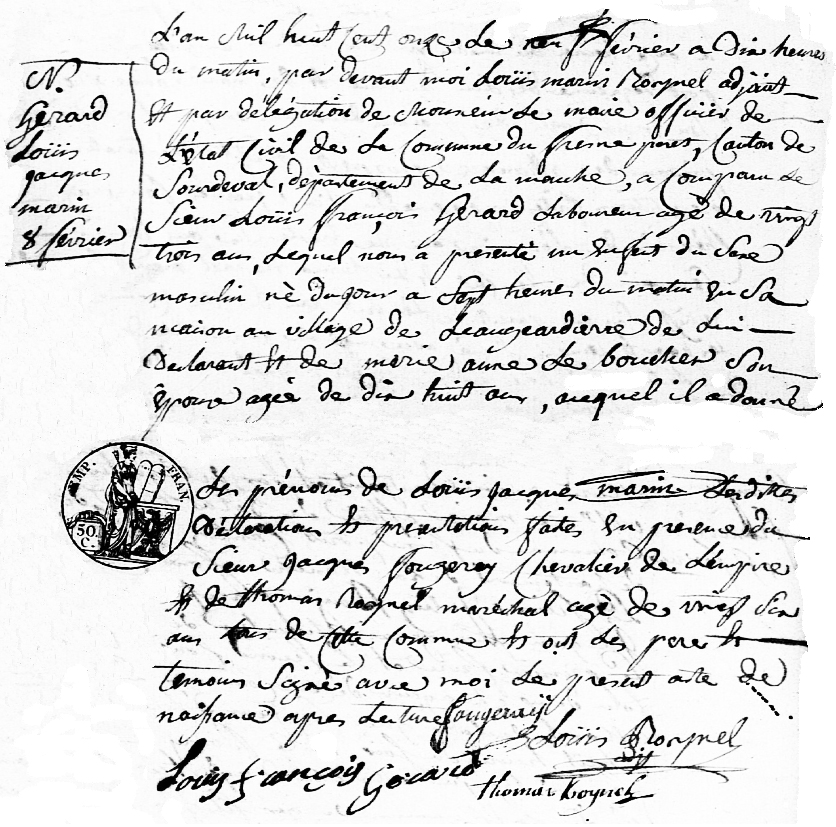 N.
Gerard
Loüis
jacques
marin
8 février
L'an Mil huit Cent onze Le février a Dix heures
Du matin, par devant moi Loüis marin Roynel adjoint
Et par délégation de Monsieur Le maire officier de
L'état Civil de La Commune du fresne poret, Canton de
Sourdeval, département de La manche, a Comparu Le
Sieur Loüis françois Gerard Laboureur agé de vingt
trois ans, Lequel nous a présenté un Enfant du Sexe
masculin né Du jour a Sept heures du matin En Sa
maison au village de de Lui
Declarant Et de marie anne Le boucher Son
Epouse agée de dix huit ans, auquel il a donné
EMP. FRAN.
50.
C.
Les prénoms de Loüis jacques marin Lesdittes
Déclarations Et présentations faites En presence du
Sieur jacques fougeray Chevalier de L'empire
Et de thomas Roynel maréchal agé de vingt Six
ans tous de Cette Commune Et ont Les pere Et
temoins Signé avec moi Le present acte de
naissance apres Lecture fougeray
Loüis Roynel
Louis françois Gerard
thomas Roynel